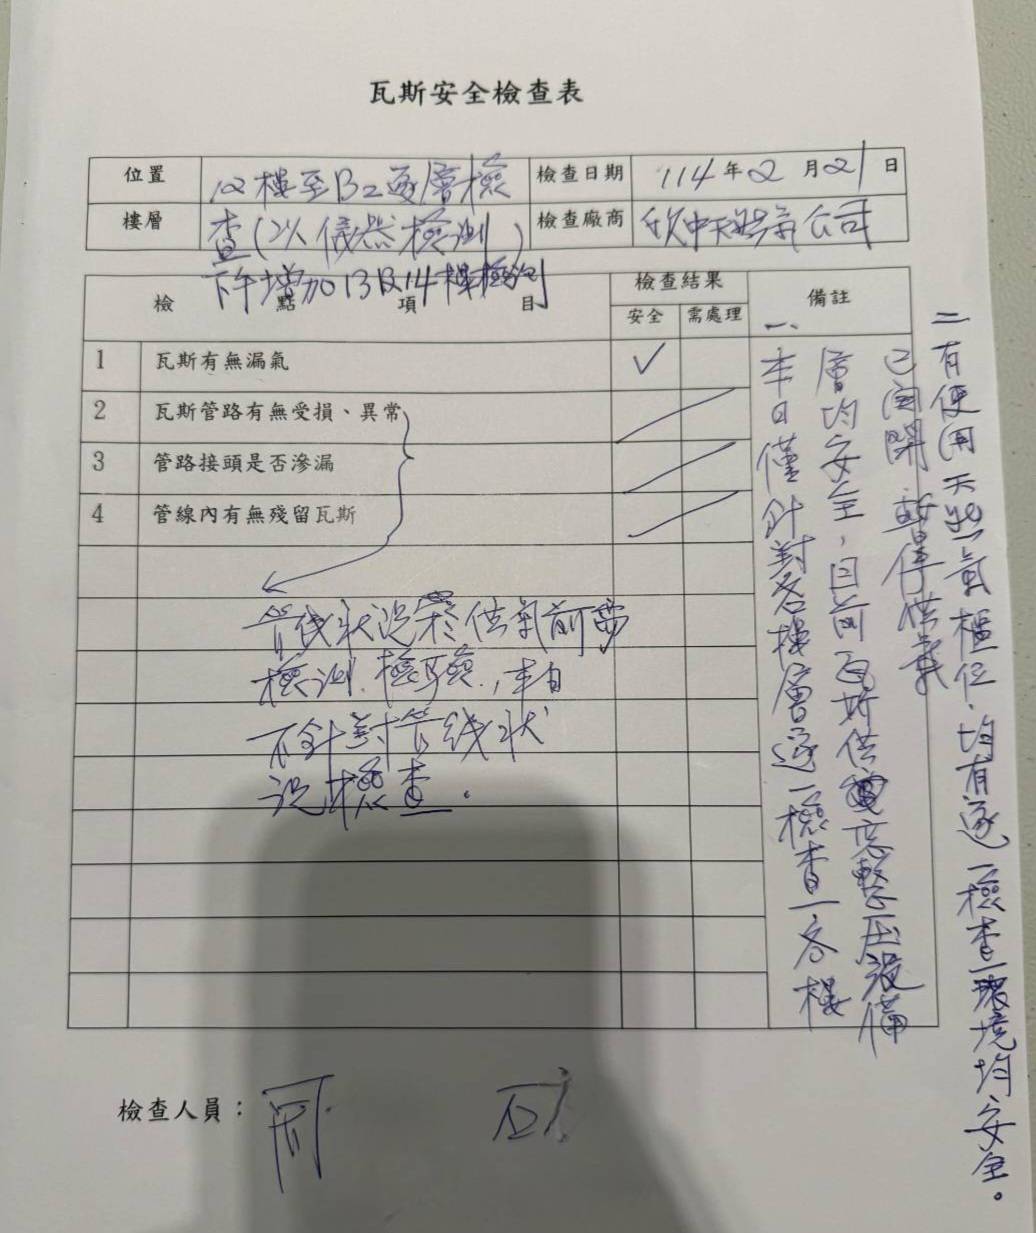 瓦斯安全檢查表
位置 12樓至B2逐層檢 檢查日期 114年2月21日
樓層 查(以儀器檢測) 檢查廠商 欣中天然氣公司
下午增加13及14樓檢測
檢點項目 檢查結果 備註
安全 需處理
1 瓦斯有無漏氣 ✓
2 瓦斯管路有無受損、異常
3 管路接頭是否滲漏
4 管線內有無殘留瓦斯
管線狀況於供氣前需
檢測、檢驗，本日
不針對管線狀
況檢查。
一、
本日僅針對各樓層逐一檢查一各樓
層均安全，目前瓦斯供氣整壓設備
已關閉 暫停供氣
二有使用天然氣櫃位、均有逐一檢查環境均安全。
檢查人員：